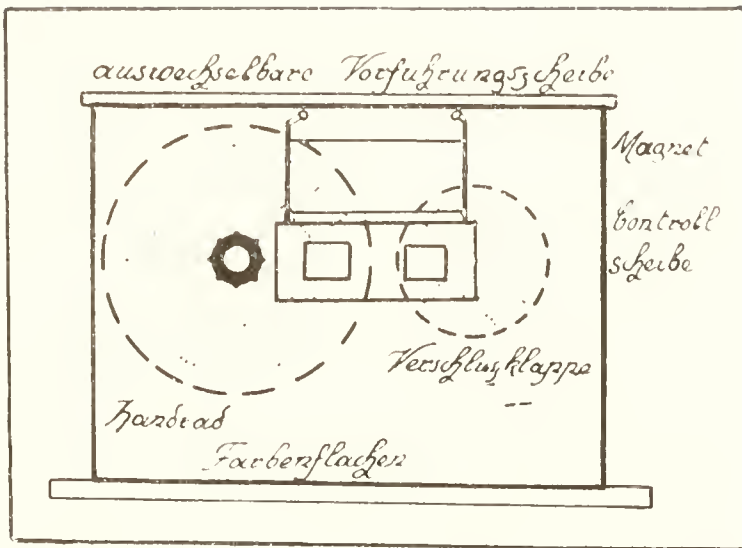 auswechselbare Vorfuhrungsscheibe
Magnet
Controll
scheibe
Verschluszklappe
Handrad
Farbenflachen